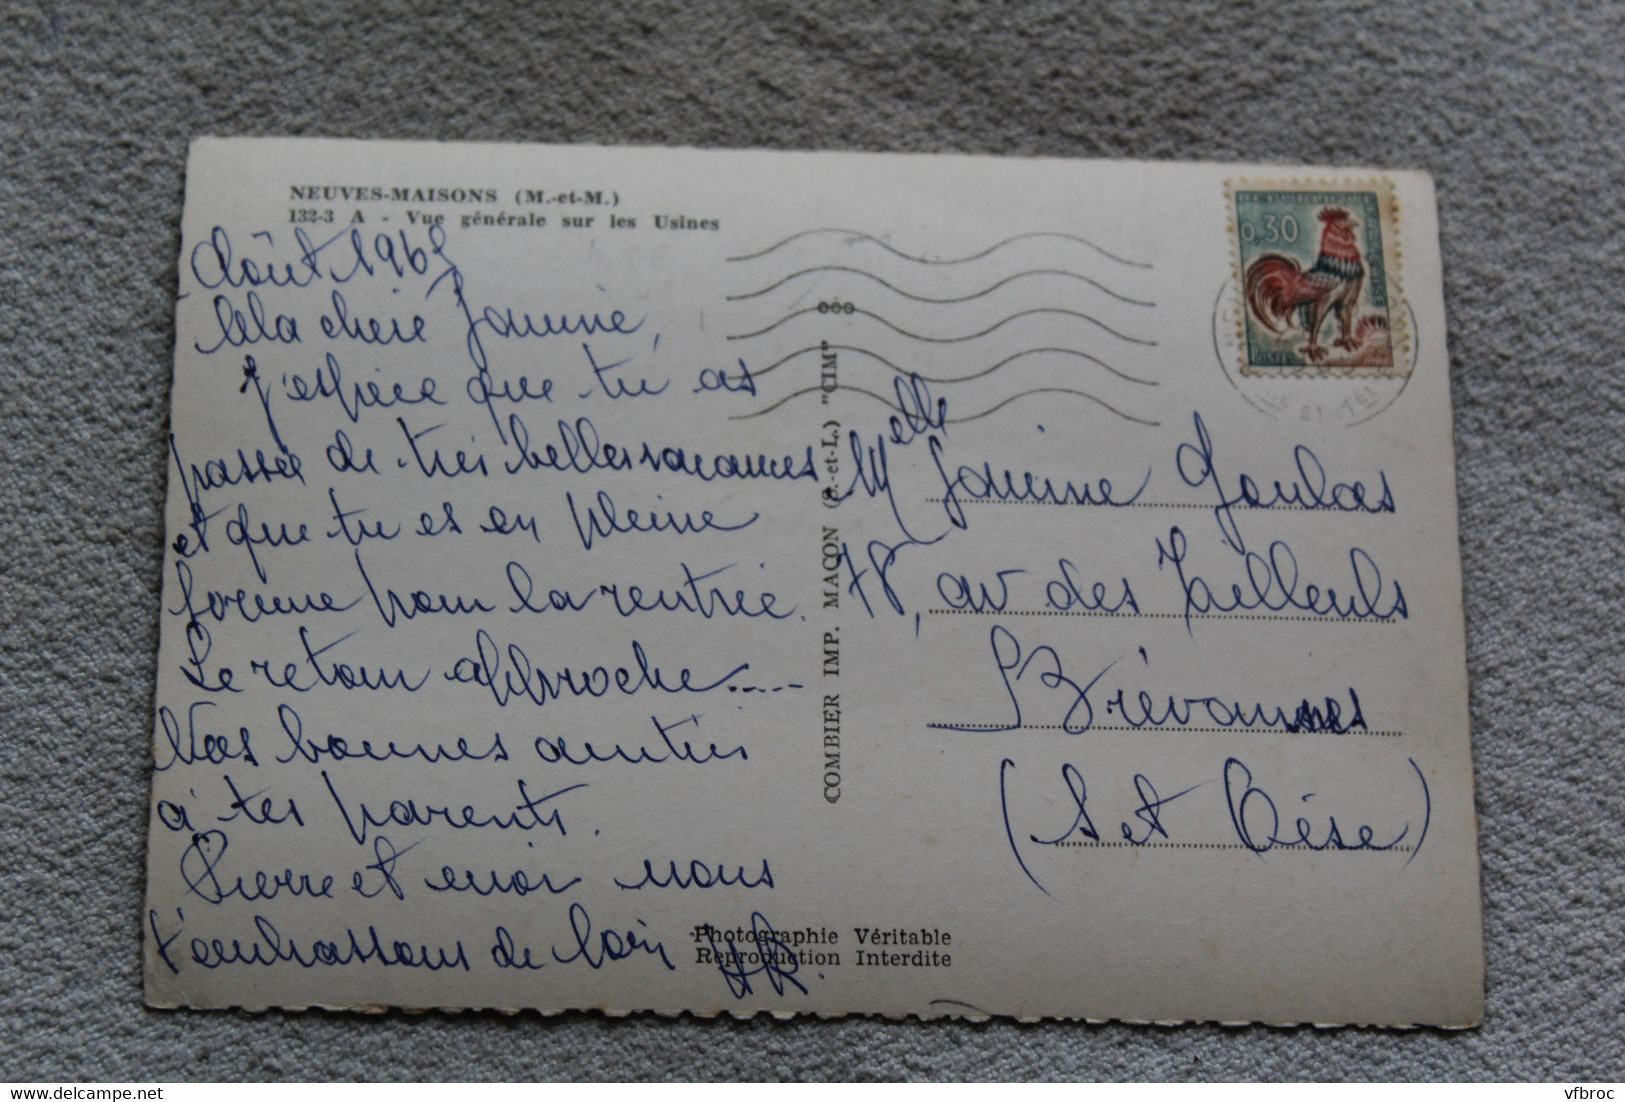 NEUVES-MAISONS (M.-et-M.)
132-3 A - Vue générale sur les Usines
Août 1965
Ma chère Janine,
J'espère que tu as
passée de très belles vacances
et que tu es en pleine
forme pour la rentrée.
Le retour approche.....
Nos bonnes amitiés
à tes parents.
Pierre et moi nous
t'embrassons de loin
HR.
COMBIER IMP. MACON (S.-et-L.) "CIM"
0,30
POSTES
Melle Janine Goulas
78, av des Tilleuls
Brévannes
(S et Oise)
Photographie Véritable
Reproduction Interdite
vfbroc